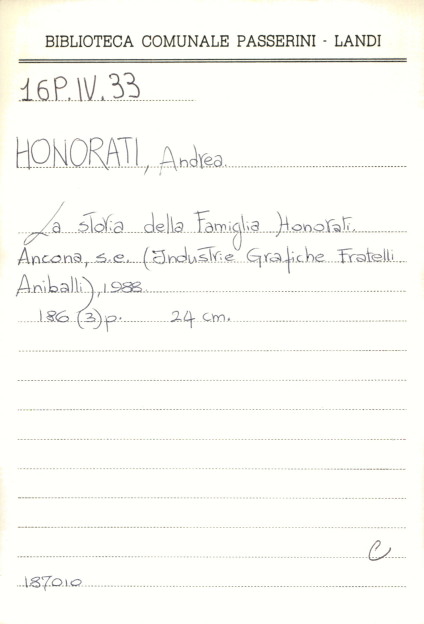 BIBLIOTECA COMUNALE PASSERINI - LANDI
16P.IV.33
HONORATI, Andrea.
La storia della Famiglia Honorati.
Ancona, s.e. (Industrie Grafiche Fratelli
Aniballi), 1988.
186 (3) p. 24 cm.
C
187010